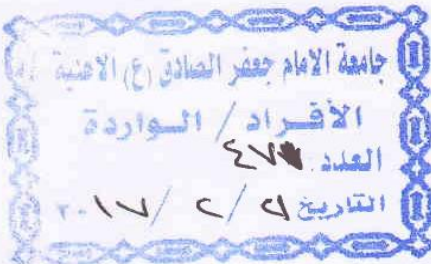 جامعة الامام جعفر الصادق (ع) الاهلية
الأفراد / الواردة
العدد: ٤٧
التاريخ / ٢ / ٢٠١٧